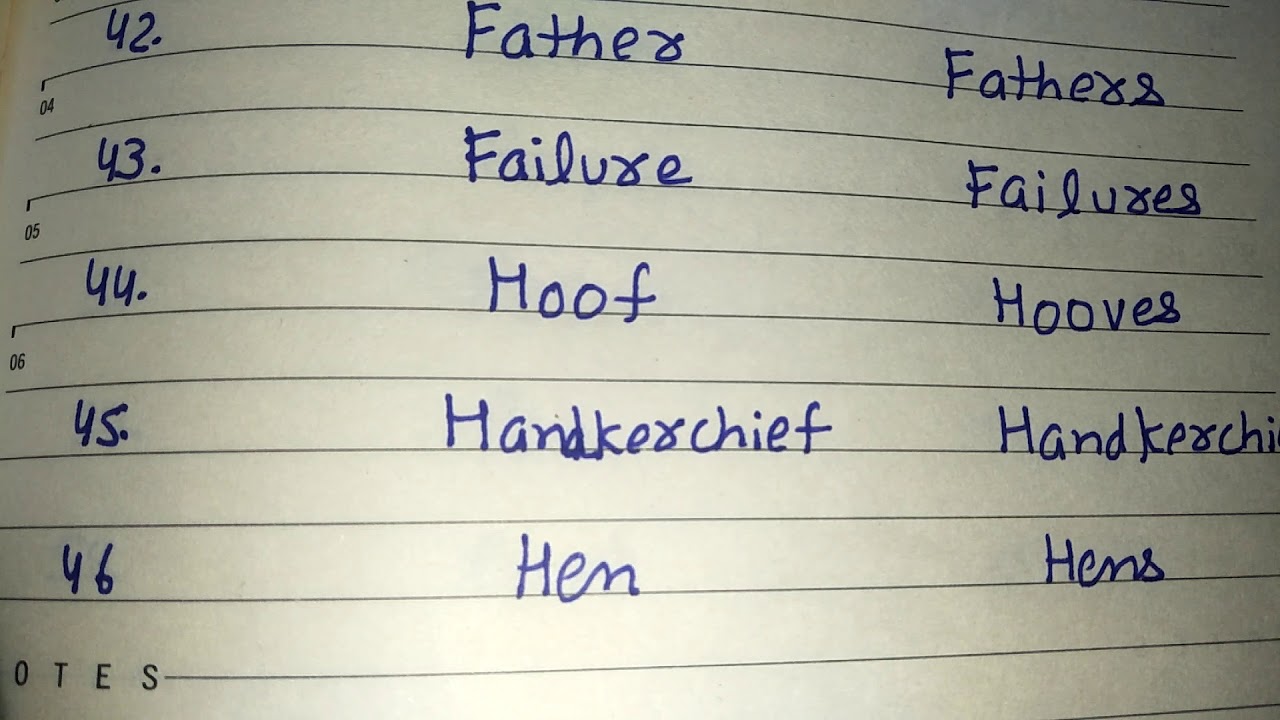 42. Father Fathers
04
43. Failure Failures
05
44. Hoof Hooves
06
45. Handkerchief Handkerchi
46 Hen Hens
OTES